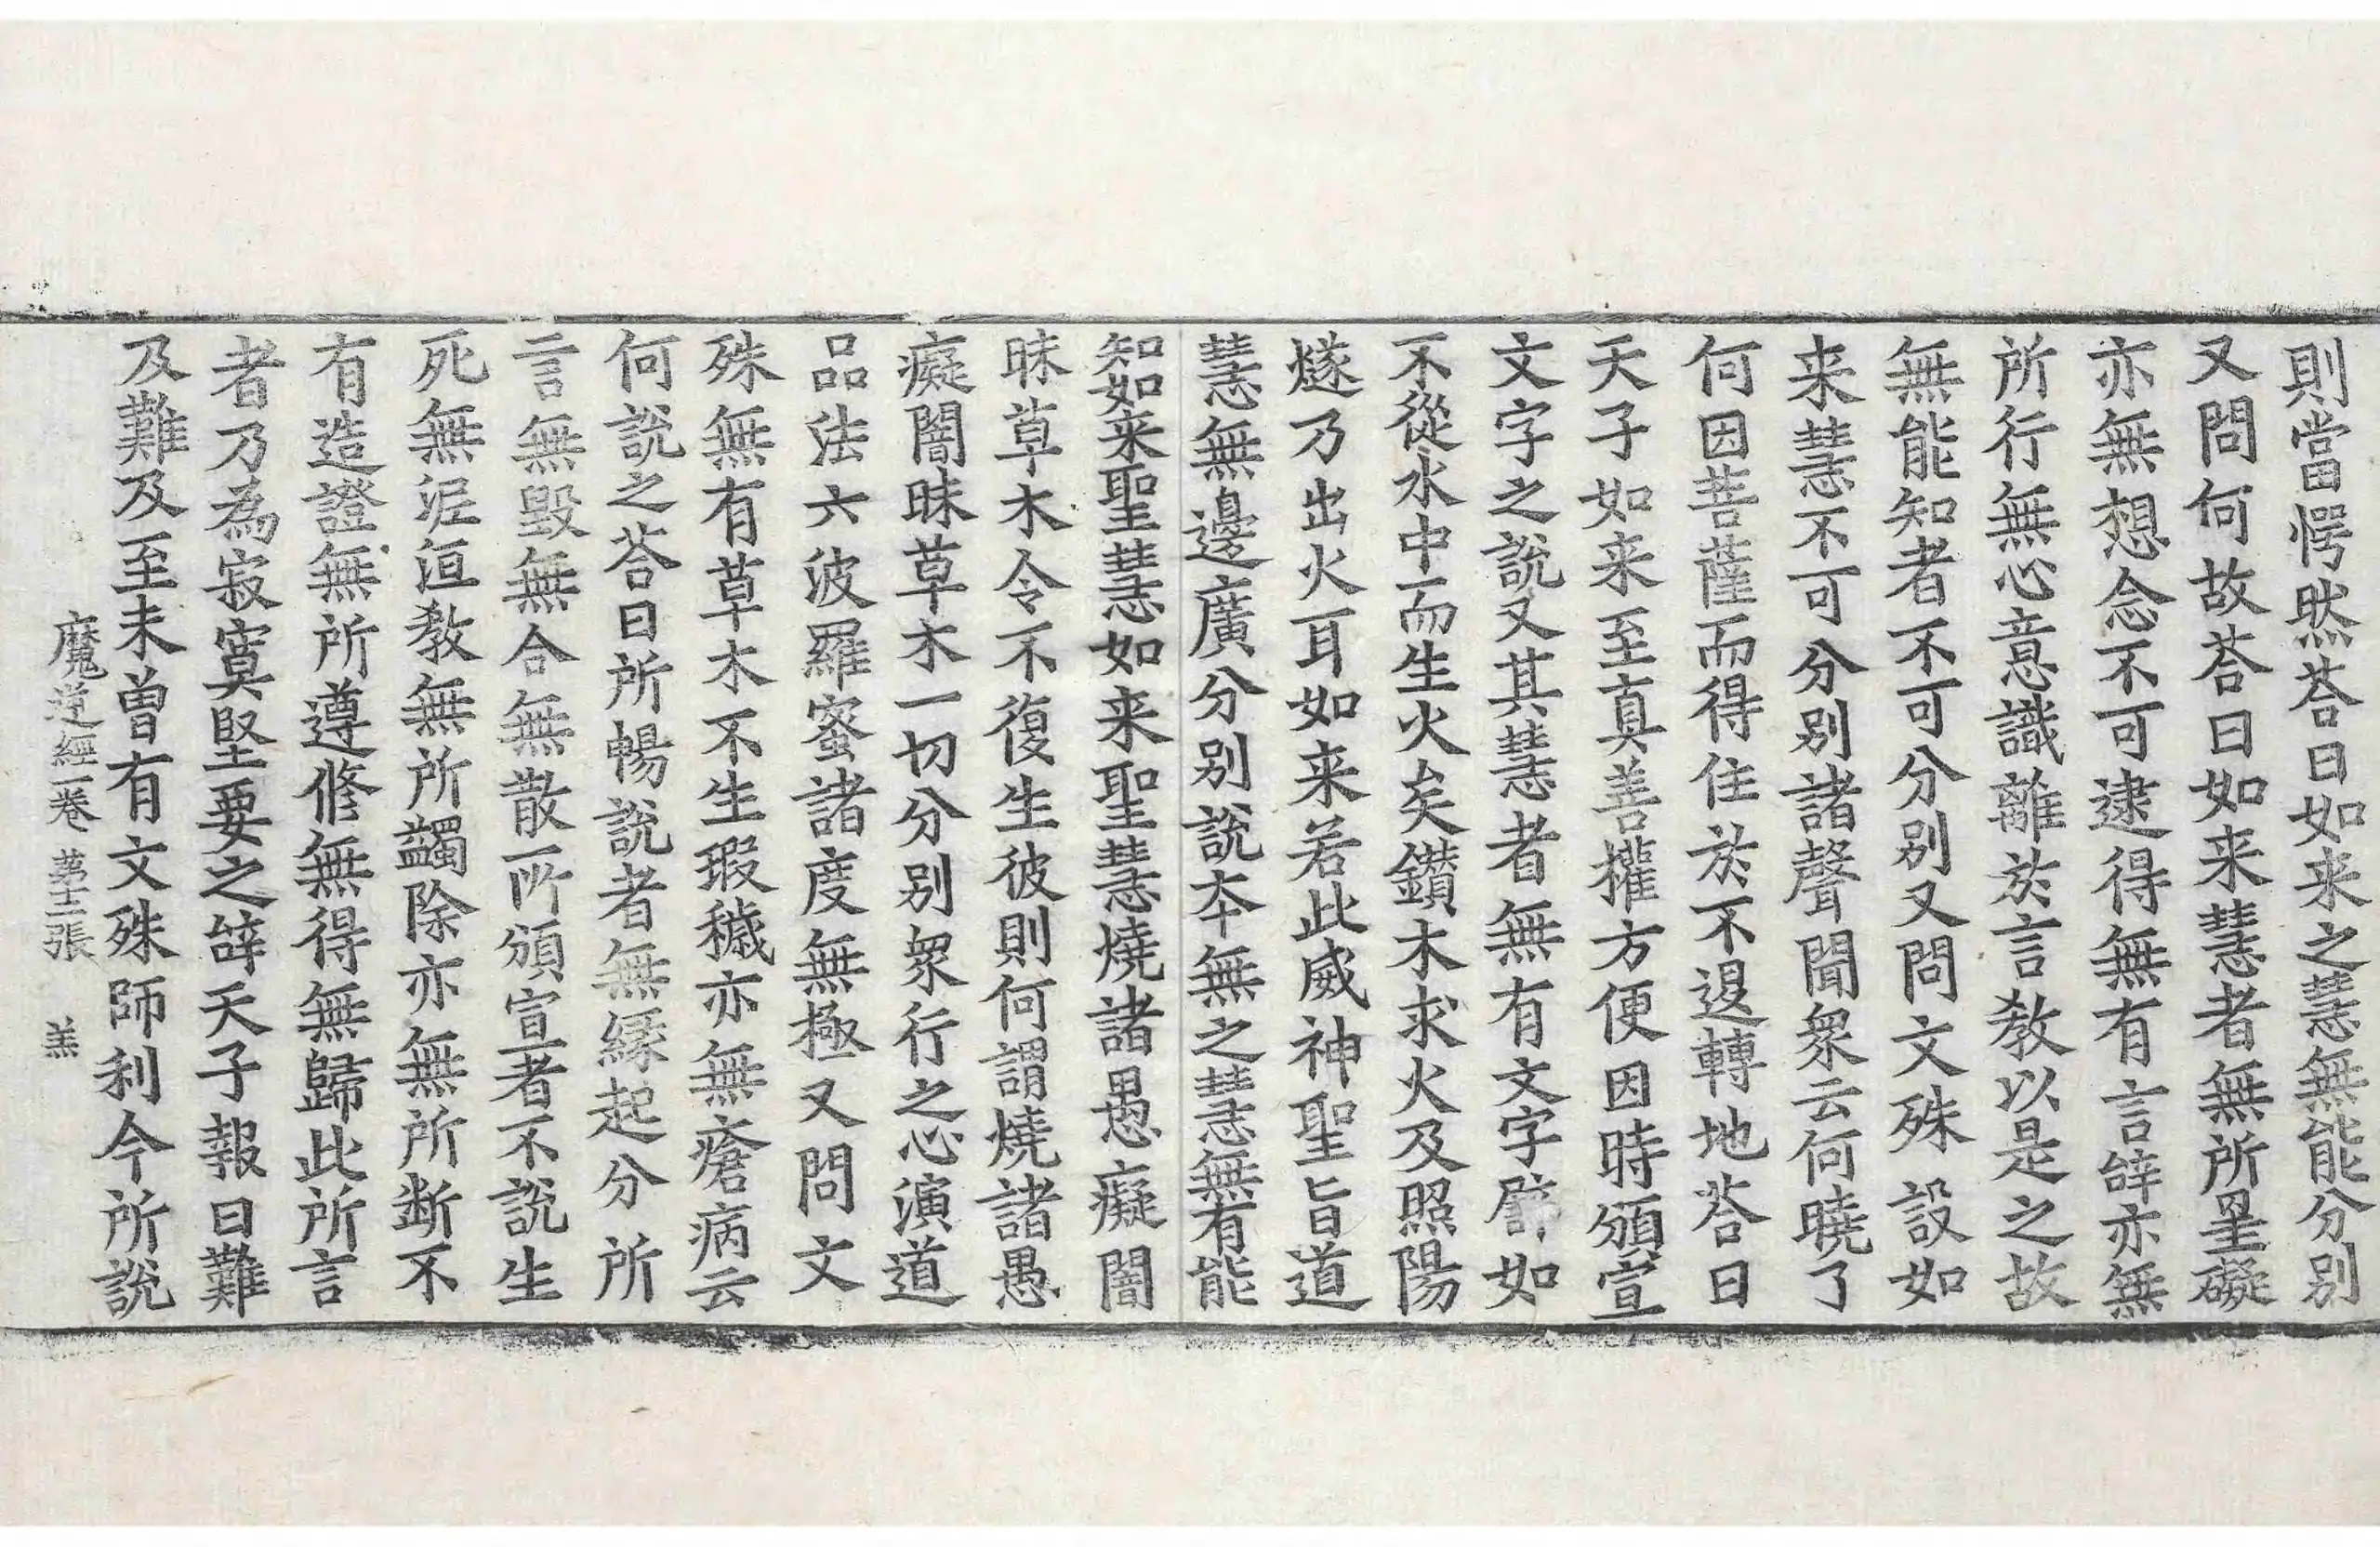 則當愕然荅曰如来之慧無能分別
又問何故荅曰如来慧者無所罣礙
亦無想念不可逮得無有言辝亦無
所行無心意識離於言教以是之故
無能知者不可分別又問文殊設如
来慧不可分別諸聲聞衆云何曉了
何因菩薩而得住於不退轉地荅曰
天子如来至真善權方便因時頒宣
文字之說又其慧者無有文字譬如
不從水中而生火矣鑚木求火及照陽
燧乃出火耳如来若此威神聖旨道
慧無邊廣分別說夲無之慧無有能
知如来聖慧如来聖慧燒諸愚癡闇
昧草木令不復生彼則何謂燒諸愚
癡闇昧草木一切分別衆行之心演道
品法六波羅蜜諸度無極又問文
殊無有草木不生瑕穢亦無瘡病云
何說之荅曰所暢說者無緣起分所
言無毀無合無散所頒宣者不說生
死無泥洹教無所蠲除亦無所断不
有造證無所遵修無得無歸此所言
者乃為寂寞堅要之辝天子報曰難
及難及至未曽有文殊師利今所說
魔逆經一卷 苐十二張 羔